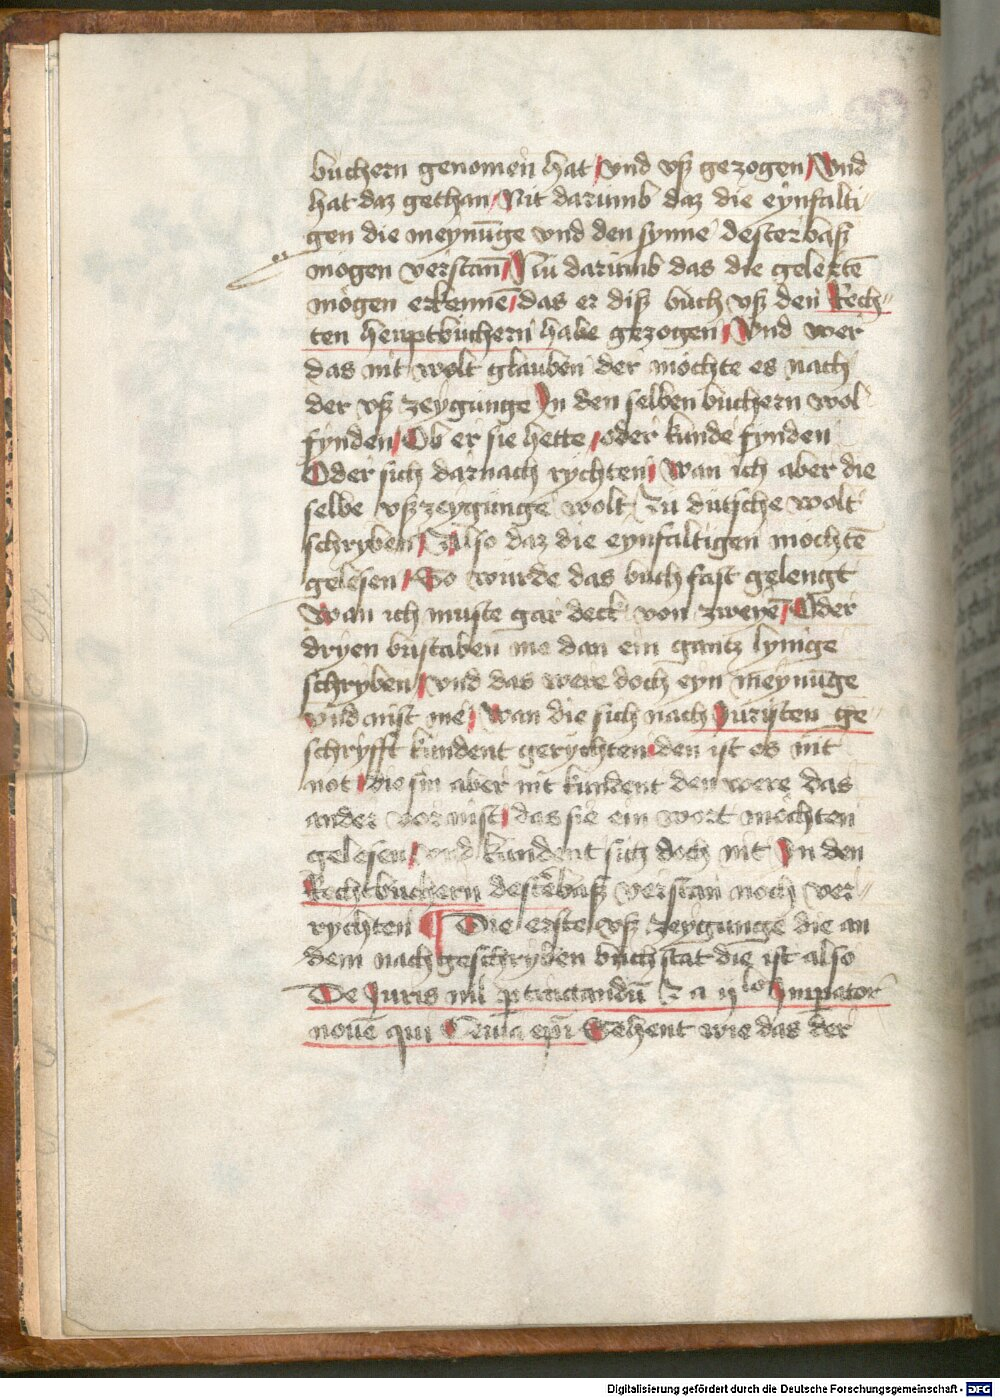 buchern genomen hat / vnd vß gezogen / Vnd
hat daz gethan / Nit darumb daz die eynfalti-
gen die meynūge vnd den synne desterbaß
mogen verstan̄ / Nu darumb das die gelertē
mogen erkennē / das er diß buch vß den Rech-
ten heuptbuchern habe gezogen / Vnd wer
das nit wolt glauben der mochte es nach
der vß zeygunge Jn den selben buchern wol
fynden / Ob er sie hette / oder kunde fynden
Oder sich darnach rychten / Wan ich aber die
selbe vßzeygunge wolt zu dutsche wolt
schryben / Also daz die eynfaltigen mochtē
gelesen / So wurde das buch fast gelengt
Wan ich muste gar deck von zweyē / Oder
dryen bustaben me dan ein gantz lynige
schryben / vnd das were doch eyn meynūge
vnd nist me / Wan die sich nach Juristen ge-
schryfft kundent gerychten / den ist es nit
not / die sin aber nit kundent den were das
ander vor nist / das sie ein wort mochten
gelesen / vnd kundent sich doch nit Jn den
Rechtbuchern destēbaß verstan noch ver-
rychten ¶ Die erste vß zeygunge die an
dem nach geschryben buch stat die ist also
De Juris nil ptractandū
nouē qui Sehent wie das der
Digitalisierung gefördert durch die Deutsche Forschungsgemeinschaft - DFG